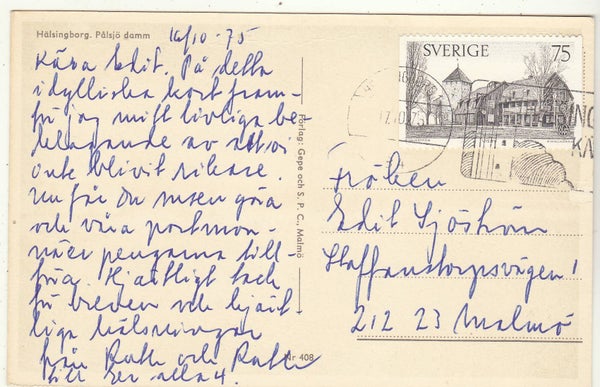 Hälsingborg. Pålsjö damm
16/10-75
Kära Edit. På detta
idylliska kort fram-
för jag mitt livliga be-
klagande av att vi
inte blivit rikare.
Nu får du resen göra
och våra portmon-
näer pengarna till-
föra. Hjärtligt tack
för breven och hjärt-
liga hälsningar
från Ruth och
till Er alla 4.
Nr 408
Förlag: Gepe och S. P. C., Malmö
SVERIGE 75
17.10.75
Fröken
Edit Sjöström
Staffanstorpsvägen 1
212 23 Malmö